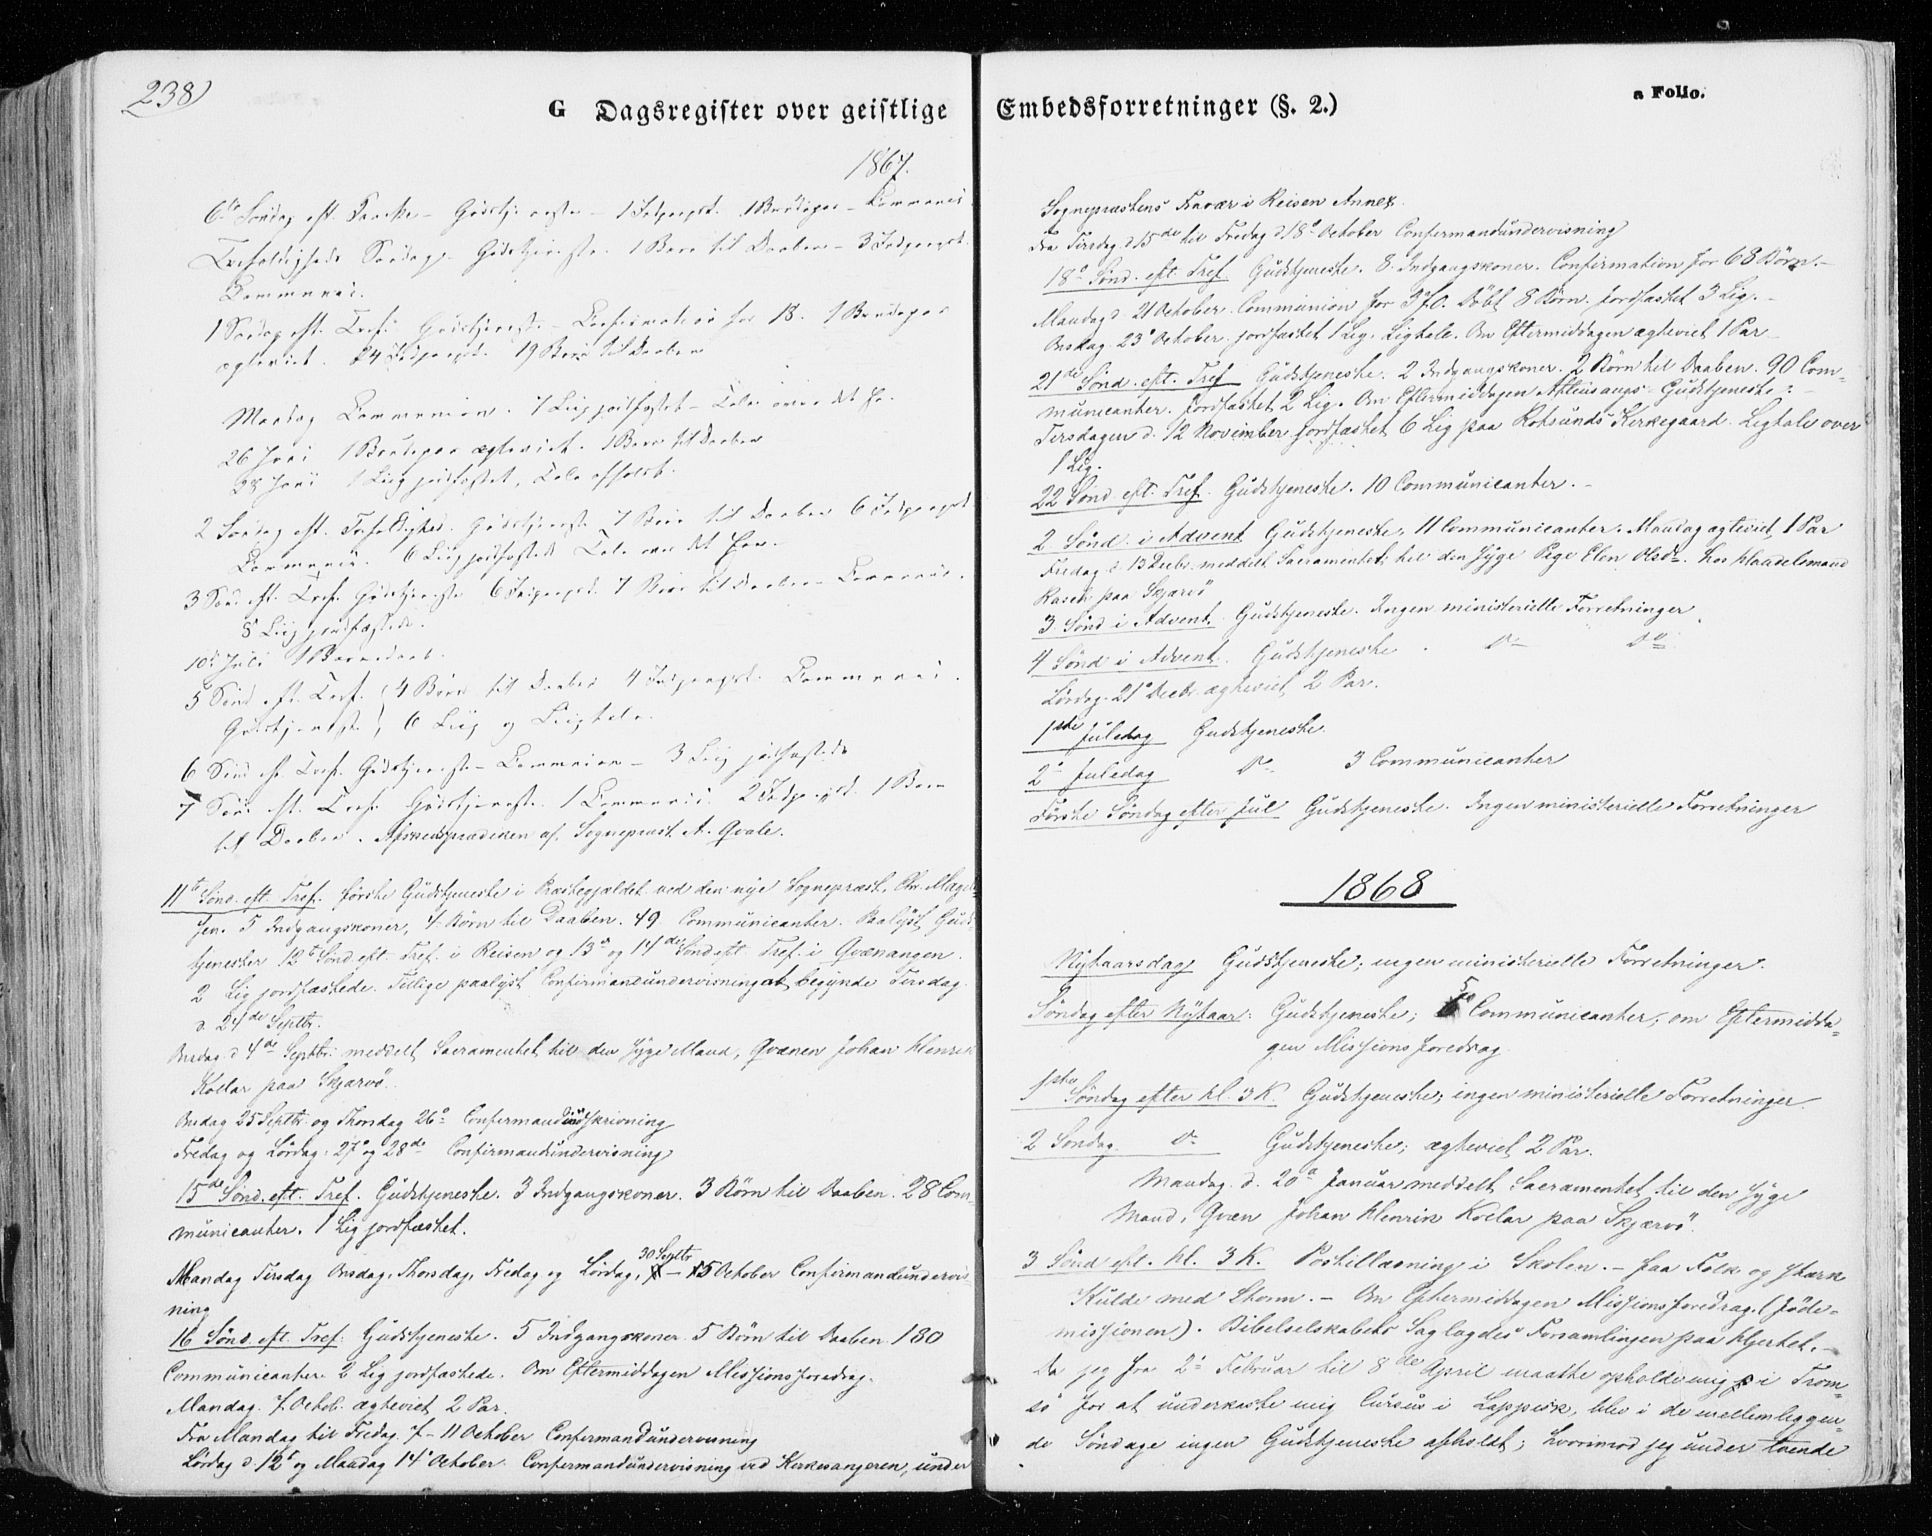 238)
G Dagsregister over geistlige Embedsforretninger (§. 2.)
a Folio.
1867.
6te Søndag eft. Paaske - Gudstjeneste - 1 Indgangsk. 1 Brudepar - Communion
Trefoldigheds Søndag. Gudstjeneste. 1 Barn til Daaben - 3 Indgangsk.
Communion.
1 Søndag eft. Tref. Gudstjeneste - Confirmation for 18. 1 Brudepar
ægteviet. 24 Indgangsk. 19 Børn til Daaben
Mandag Communion. 7 Liig jordfæstet - Tale over det
26 Juni 1 Brudepar ægteviet. 1 Barn til Daaben
28 Juni 1 Liig jordfæstet, Tale afholdt.
2 Søndag eft. Trefoldighed. Gudstjeneste 7 Børn til Daaben 6 Indgangsk
Communion. 6 Liig jordfæstede Tale over det Ene.
3 Sønd eft. Tref. Gudstjeneste 6 Indgangsk. 7 Børn til Daaben - Communion.
8 Liig jordfæstede.
10de Juli 1 Barnedaab.
5 Sønd eft. Tref. (4 Børn til Daaben 4 Indgangsk. Communion.
Gudstjeneste) 6 Liig og Liigtale.
6 Sønd eft. Tref. Gudstjeneste - Communion - 3 Liig jordfæstede
7 Sønd eft. Tref. Gudstjeneste. 1 Communion. 2 Indgangsk. 1 Barn
til Daaben. Afskedsprædiken af Sognepræst A. Qvale.
11te Sønd. eft. Tref. første Gudstjeneste i Præstegjældet ved den nye Sognepræst, Chr. Magel-
sen. 5 Indgangskoner, 4 Børn til Daaben. 49 Communicanter. Paalyst Guds-
tjenester 12te Sønd. eft. Tref. i Reisen og 13de og 14de Sønd eft Tref. i Qvænangen.
2 Lig jordfæstede. Tillige paalyst Confirmandundervisning at begynde Tirsdag
d. 24de Septbr.
Onsdag d 4de Septbr: meddelt Sacramentet til den syge Mand, Qvænen Johan Henrik
Kollar paa Skjærvö.
Onsdag 25 Septbr og Thorsdag 26de Confirmandindskrivning
Fredag og Lördag 27de og 28de Confirmandundervisning
15de Sönd. eft. Tref. Gudstjeneste. 3 Indgangskoner. 3 Börn til Daaben. 28 Com-
municanter. 1 Lig jordfæstet.
Mandag Tirsdag Onsdag, Thorsdag, Fredag og Lördag, 30 Septbr - 5 October Confirmandundervis-
ning
16 Sönd. eft. Tref: Gudstjeneste. 5 Indgangskoner. 5 Börn til Daaben. 180
Communicanter. 2 Lig jordfæstede. Om Eftermiddagen Missionsforedrag.
Mandag. 7 Octob. ægteviet 2 Par.
Fra Mandag til Fredag 7 - 11 October Confirmandundervisning
Lördag d. 12te og Mandag 14de October. Confirmandundervisning ved Kirkesangeren, under
Sognepræstens Fravær i Reisen Annex.
Fra Tirsdag d 15de til Fredag d 18de October Confirmandundervisning
18de Sönd. eft Tref Gudstjeneste. 8 Indgangskoner. Confirmation for 68 Börn.-
Mandag d. 21 October. Communion for 370. Döbt 8 Börn. jordfæstet 3 Lig.-
Onsdag 23de October. jordfæstet 1 Lig. Ligtale. Om Eftermiddagen ægteviet 1 Par
21de Sönd. eft. Tref Gudstjeneste. 2 Indgangskoner. 2 Börn til Daaben. 90 Com-
municanter. jordfæstet 2 Lig. Om Eftermiddagen Aftensangs-Gudstjeneste.-
Tirsdagen d. 12 November jordfæstet 6 Lig paa Rotsunds Kirkegaard. Ligtale over
1 Lig.
22 Sönd. eft. Tref. Gudstjeneste. 10 Communicanter.-
2. Sönd. i Advent Gudstjeneste, 11 Communicanter. Mandag ægteviet 1 Par
Fredag d. 13 Decbr. meddelt Sacramentet til den syge Pige Elen Olsdtr. hos Handelsmand
Rasch paa Skjærvö
3. Sönd i Advent. Gudstjeneste. Ingen ministerielle Forretninger
4 Sönd i Advent. Gudstjeneste. Do Do
Lördag. 21de Decbr. ægteviet 2 Par.
1ste Juledag Gudstjeneste.
2de Juledag Do 3 Communicanter
Förste Söndag efter Jul Gudstjeneste. Ingen ministerielle Forretninger
1868
Nytaarsdag Gudstjeneste; ingen ministerielle Forretninger.
Söndag efter Nytaar: Gudstjeneste; 5 Communicanter; om Eftermidda-
gen Missionsforedrag.
1ste Söndag efter hl. 3 K. Gudstjeneste; ingen ministerielle Forretninger.
2 Söndag Do Gudstjeneste; ægteviet 2 Par.
Mandag. d. 20de Januar meddelt Sacramentet til den syge
Mand, Qvæn Johan Henrik Kollar paa Skjærvö.
3 Sönd eft. hl. 3 K. Postillæsning i Skolen. - faa Folk og stærk
Kulde med Storm. - Om Eftermiddagen Missionsforedrag. (Jöde-
missionen). Bibelselskabets Sag lagdes Forsamlingen paa Hjertet.-
Da jeg fra 2de Februar til 8de April maatte opholde mig i Trom-
sö for at underkaste mig Cursus i Lappisk, blev i de mellemliggen-
de Söndage ingen Gudstjeneste afholdt; hvorimod jeg under tvende